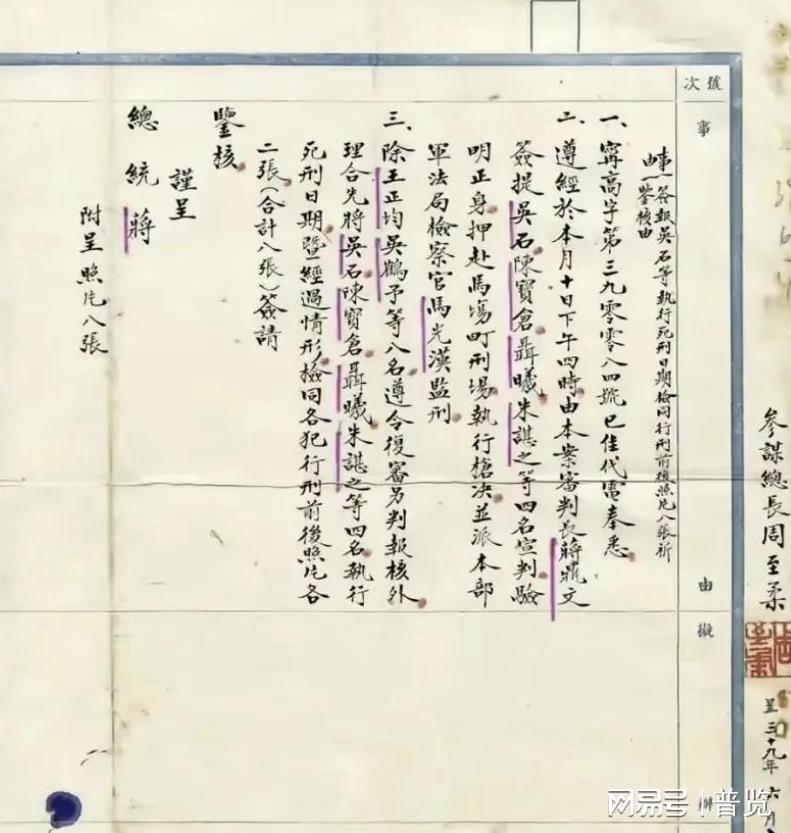 參謀總長周至柔
呈三十九年六月
號次
事由
擬辦
事由
簽報吳石等執行死刑日期檢同行刑前後照片八張祈
鑒核由
一、寗高字第三九〇〇八四號巳佳代電奉悉
二、遵經於本月十日下午四時由本案審判長蔣鼎文
簽提吳石陳寶倉聶曦朱諶之等四名宣判驗
明正身押赴馬場町刑場執行槍決並派本部
軍法局檢察官馬光漢監刑
三、除王正均吳鶴予等八名遵令復審另判報核外
理合先將吳石陳寶倉聶曦朱諶之等四名執行
死刑日期暨經過情形檢同各犯行刑前後照片各
二張(合計八張)簽請
鑒核
謹呈
總統蔣
附呈照片八張
网易号 | 普览